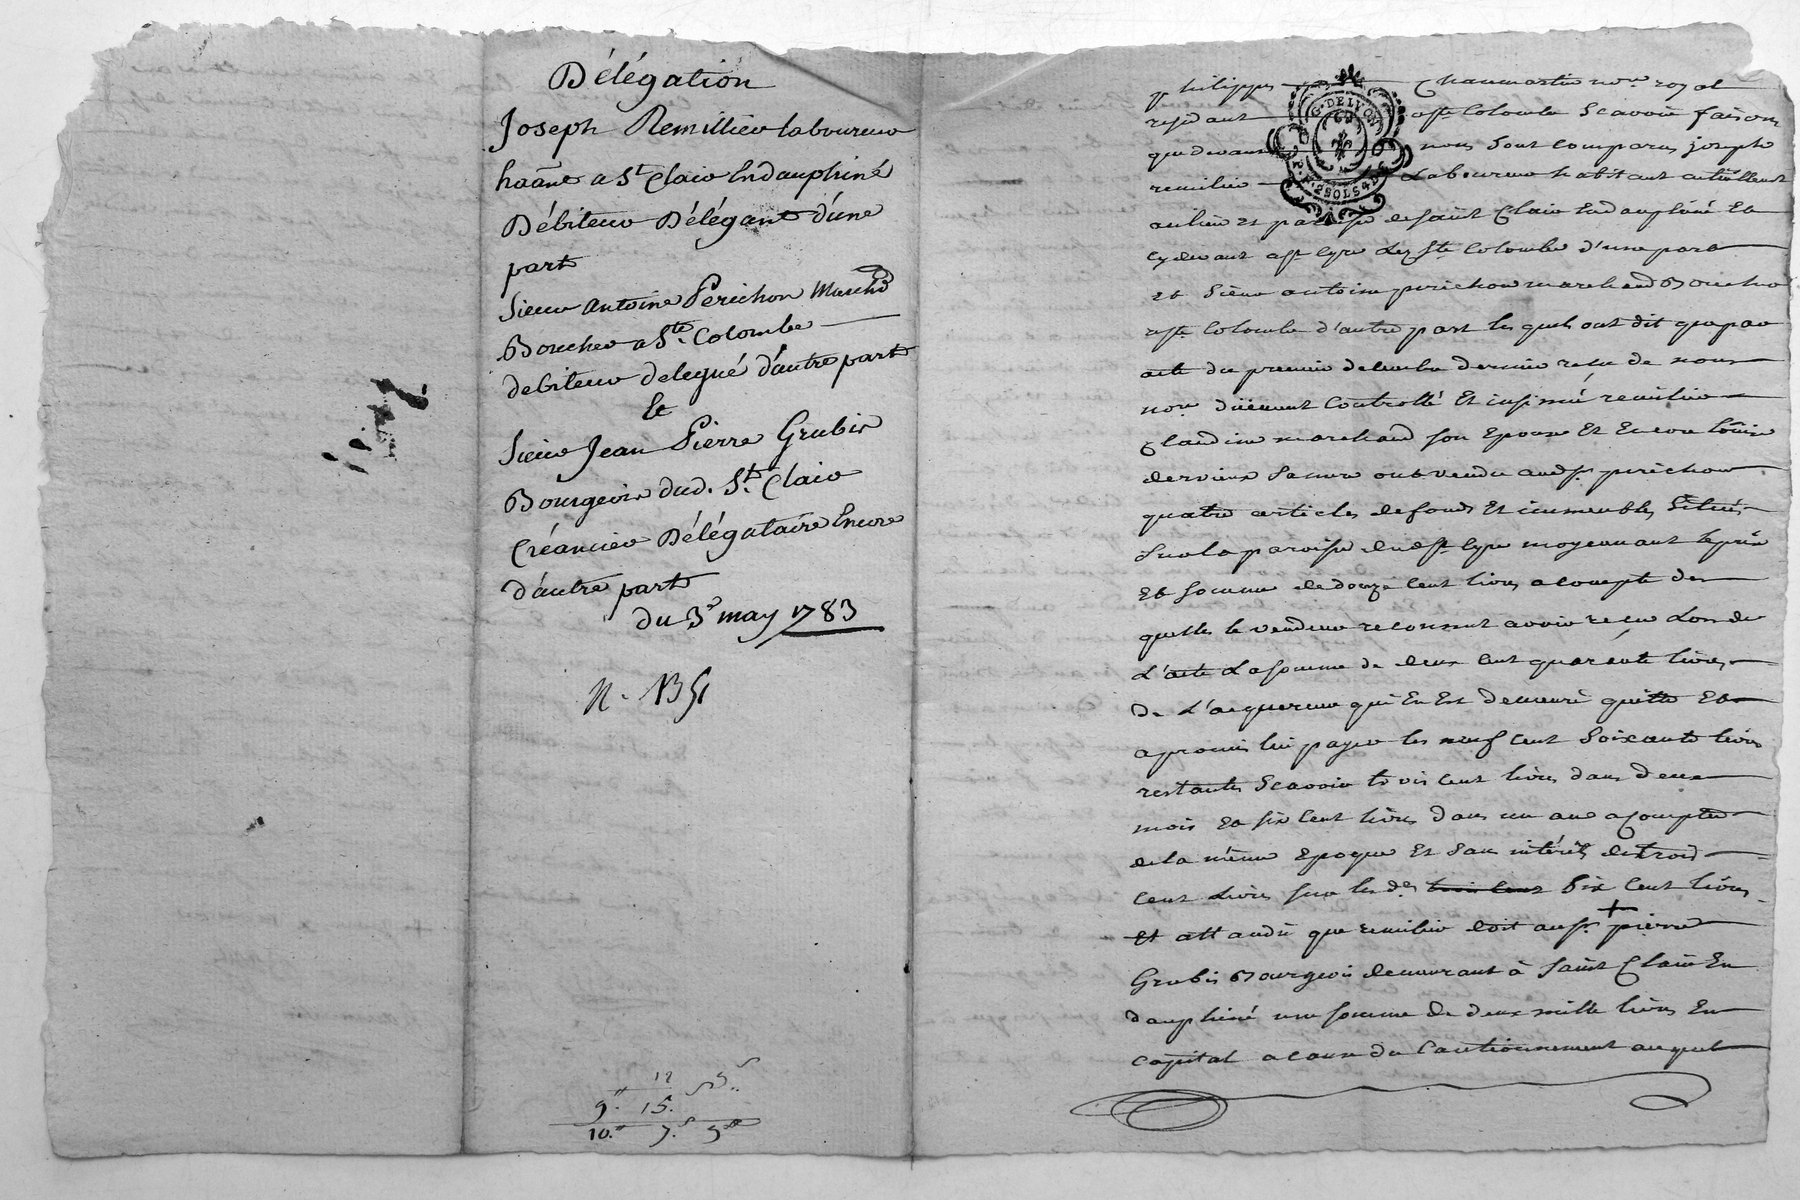 Délégation
Joseph Remillieu laboureur
haânt a St Clair Endauphiné
Débiteur Délégant d'une
part
Sieur Antoine Perichon Marchd
Boucher a Ste Colombe
debiteur delegué d'autre part
et
Sieur Jean Pierre Grubis
Bourgeois dud. St Clair
Créancier Délégataire Encore
d'autre part
du 3e may 1783
N. 135
12 5
9. 15.
10. 7. 5
philippe Chaumartin nore royal
residant aste Colombe Scavoir faisons
que devant nous Sont comparus joseph
remilieu Laboureur habitant actuellement
aulieu et paroisse desaint Clair Endauphiné Et
cydevant ast cyre Lez Ste Colombe d'une part
et Sieur antoine perichon marchand Boucher
aste Colombe d'autre part lesquels ont dit que par
acte du premier decembre dernier recu de nous
nore düement Controllé Et insinué remilieu
Claudine marchand son Epouse Et Encore
dervieux Sa mere ont vendu audst perichon
quatre articles defonds Et immeubles Situés
Surla paroisse dudst cyre moyenant leprix
Et somme dedouze cent livres acompte des
quelles le vendeur reconnut avoir recu Lors de
L'acte La somme de deux cent quarante livres
de L'acquereur qui En Est demeuré quitte Et
apromis lui payer les neuf cent Soixante livres
restantes Scavoir trois cent livres dans deux
mois Et six cent livres dans un an acompter
dela même Epoque Et Sans intérêts detrois
cent Livres sur les des trois cent Six cent livres
Et attandu que remilieu doit aussr + pierre
Grubis Bourgeois demeurant à Saint Clair En
dauphiné une somme de deux mille livres En
capital acause du Cautionnement auquel
G. DE LYON
P. P. 2 SOLS 4 D.